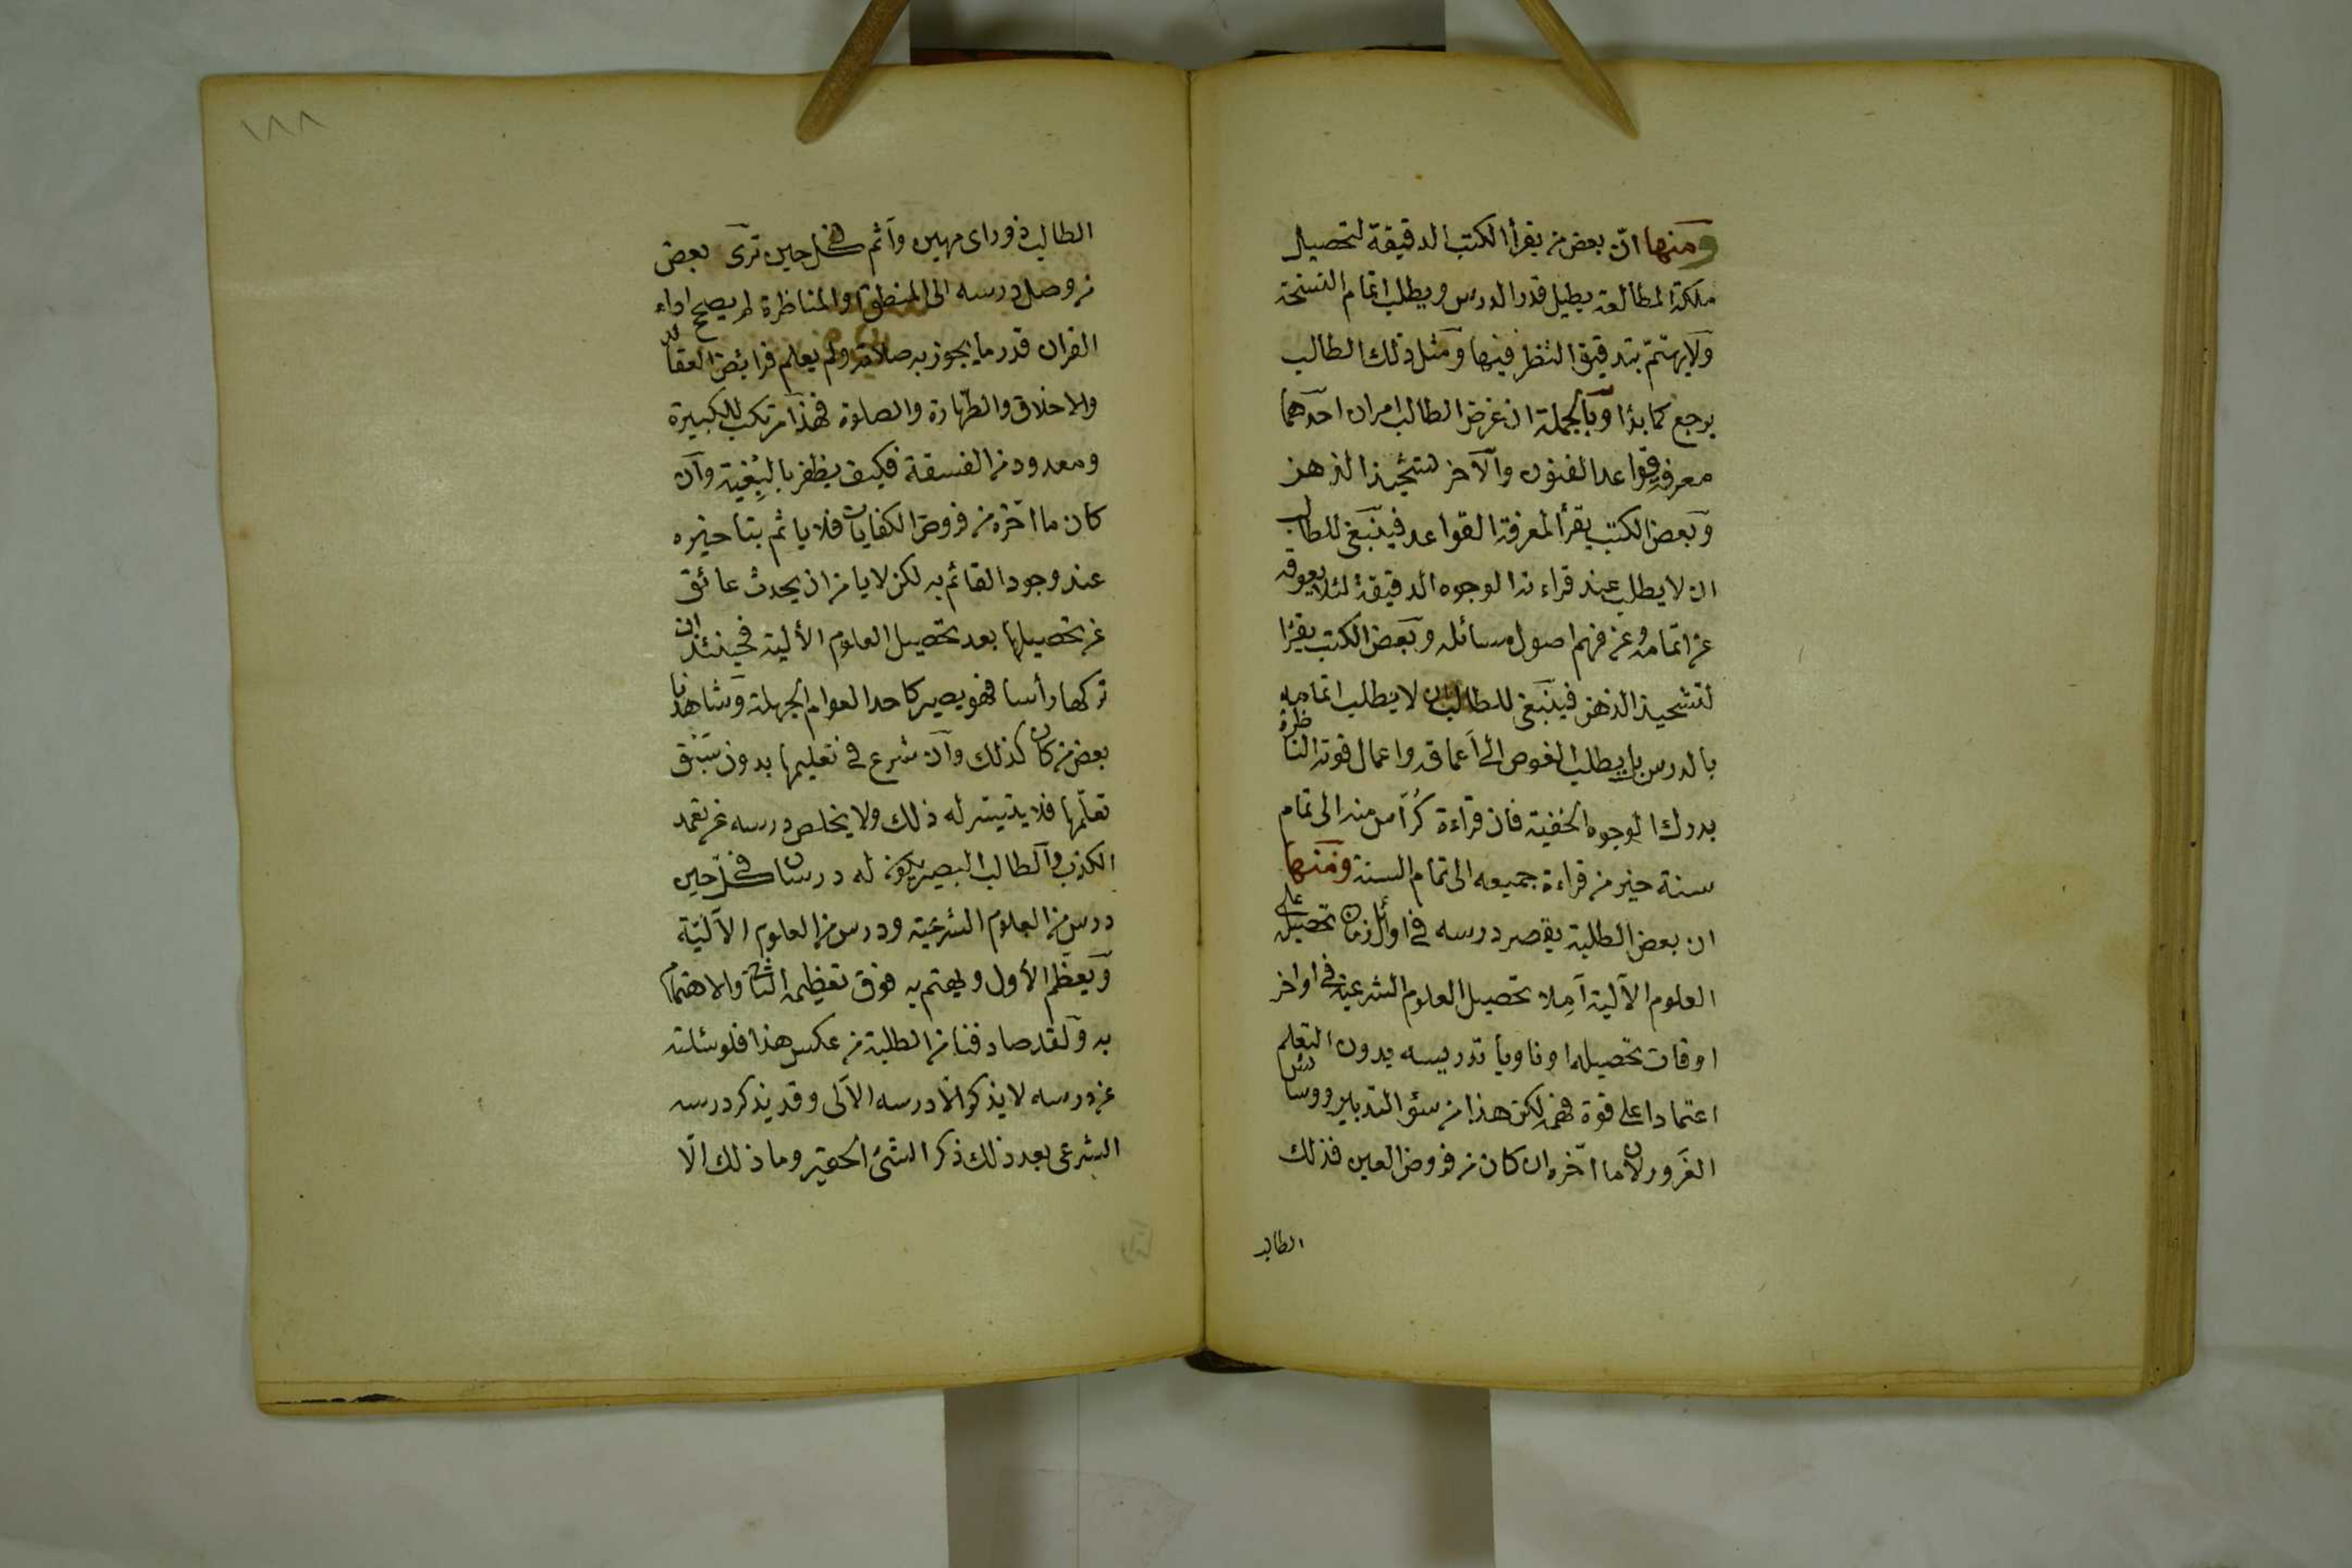 ومنها ان بعض من يقرأ الكتب الدقيقة لتحصيل
ملكة المطالعة يطيل قدر الدرس ويطلب اتمام النسخة
ولا يهتم بتدقيق النظر فيها ومثل ذلك الطالب
يرجع كما بدا وبالجملة ان غرض الطالب امران احدهما
معرفة قواعد الفنون والآخر تشحيذ الذهن
وبعض الكتب يقرأ لمعرفة القواعد فينبغي للطالب
ان لا يطلب عند قراءته الوجوه الدقيقة لئلا يعوقه
عن اتمامه وعن فهم اصول مسائله وبعض الكتب يقرأ
لتشحيذ الذهن فينبغي للطالب ان لا يطلب اتمامه
بالدرس بل يطلب الغوص الى اعماقه واعمال قوته الناظرة
بدرك الوجوه الخفية فان قراءة كراس منه الى تمام
سنة خير من قراءة جميعه الى تمام السنة ومنها
ان بعض الطلبة يقصر درسه في اوائل زمان تحصيله على
العلوم الآلية آملا تحصيل العلوم الشرعية في اواخر
اوقات تحصيله او ناويا تدريسه بدون التعلم
اعتمادا على قوة فهمه لكن هذا من سوء التدبير ووساوس
الغرور لان ما اخره ان كان من فروض العين فذلك
الطالب
١٨٨
الطالب ذو راى مهين وآثم في كل حين ترى بعض
من وصل درسه الى المنطق والمناظرة لم يصحح اداء
القران قدر ما يجوز به صلاته ولم يعلم فرائض العقائد
والاخلاق والطهارة والصلوة فهذا مرتكب للكبيرة
ومعدود من الفسقة فكيف يظفر بالبغية وان
كان ما اخره من فروض الكفايات فلا يأثم بتأخيره
عند وجود القائم به لكن لا يأمن ان يحدث عائق
عن تحصيلها بعد تحصيل العلوم الآلية فحينئذ ان
تركها رأسا فهو يصير كاحد العوام الجهلة وشاهدنا
بعض من كان كذلك وان شرع في تعليمها بدون سبق
تعلمها فلا يتيسر له ذلك ولا يخلص درسه عن تعمد
الكذب والطالب البصير يكون له درسان في كل حين
درس من العلوم الشرعية ودرس من العلوم الآلية
ويعظم الأول ويهتم به فوق تعظيمه الثاني والاهتمام
به ولقد صادفنا من الطلبة من عكس هذا فلو سئلته
عن درسه لا يذكر الا درسه الآلى وقد يذكر درسه
الشرعى بعد ذلك ذكر الشئ الحقير وما ذلك الا